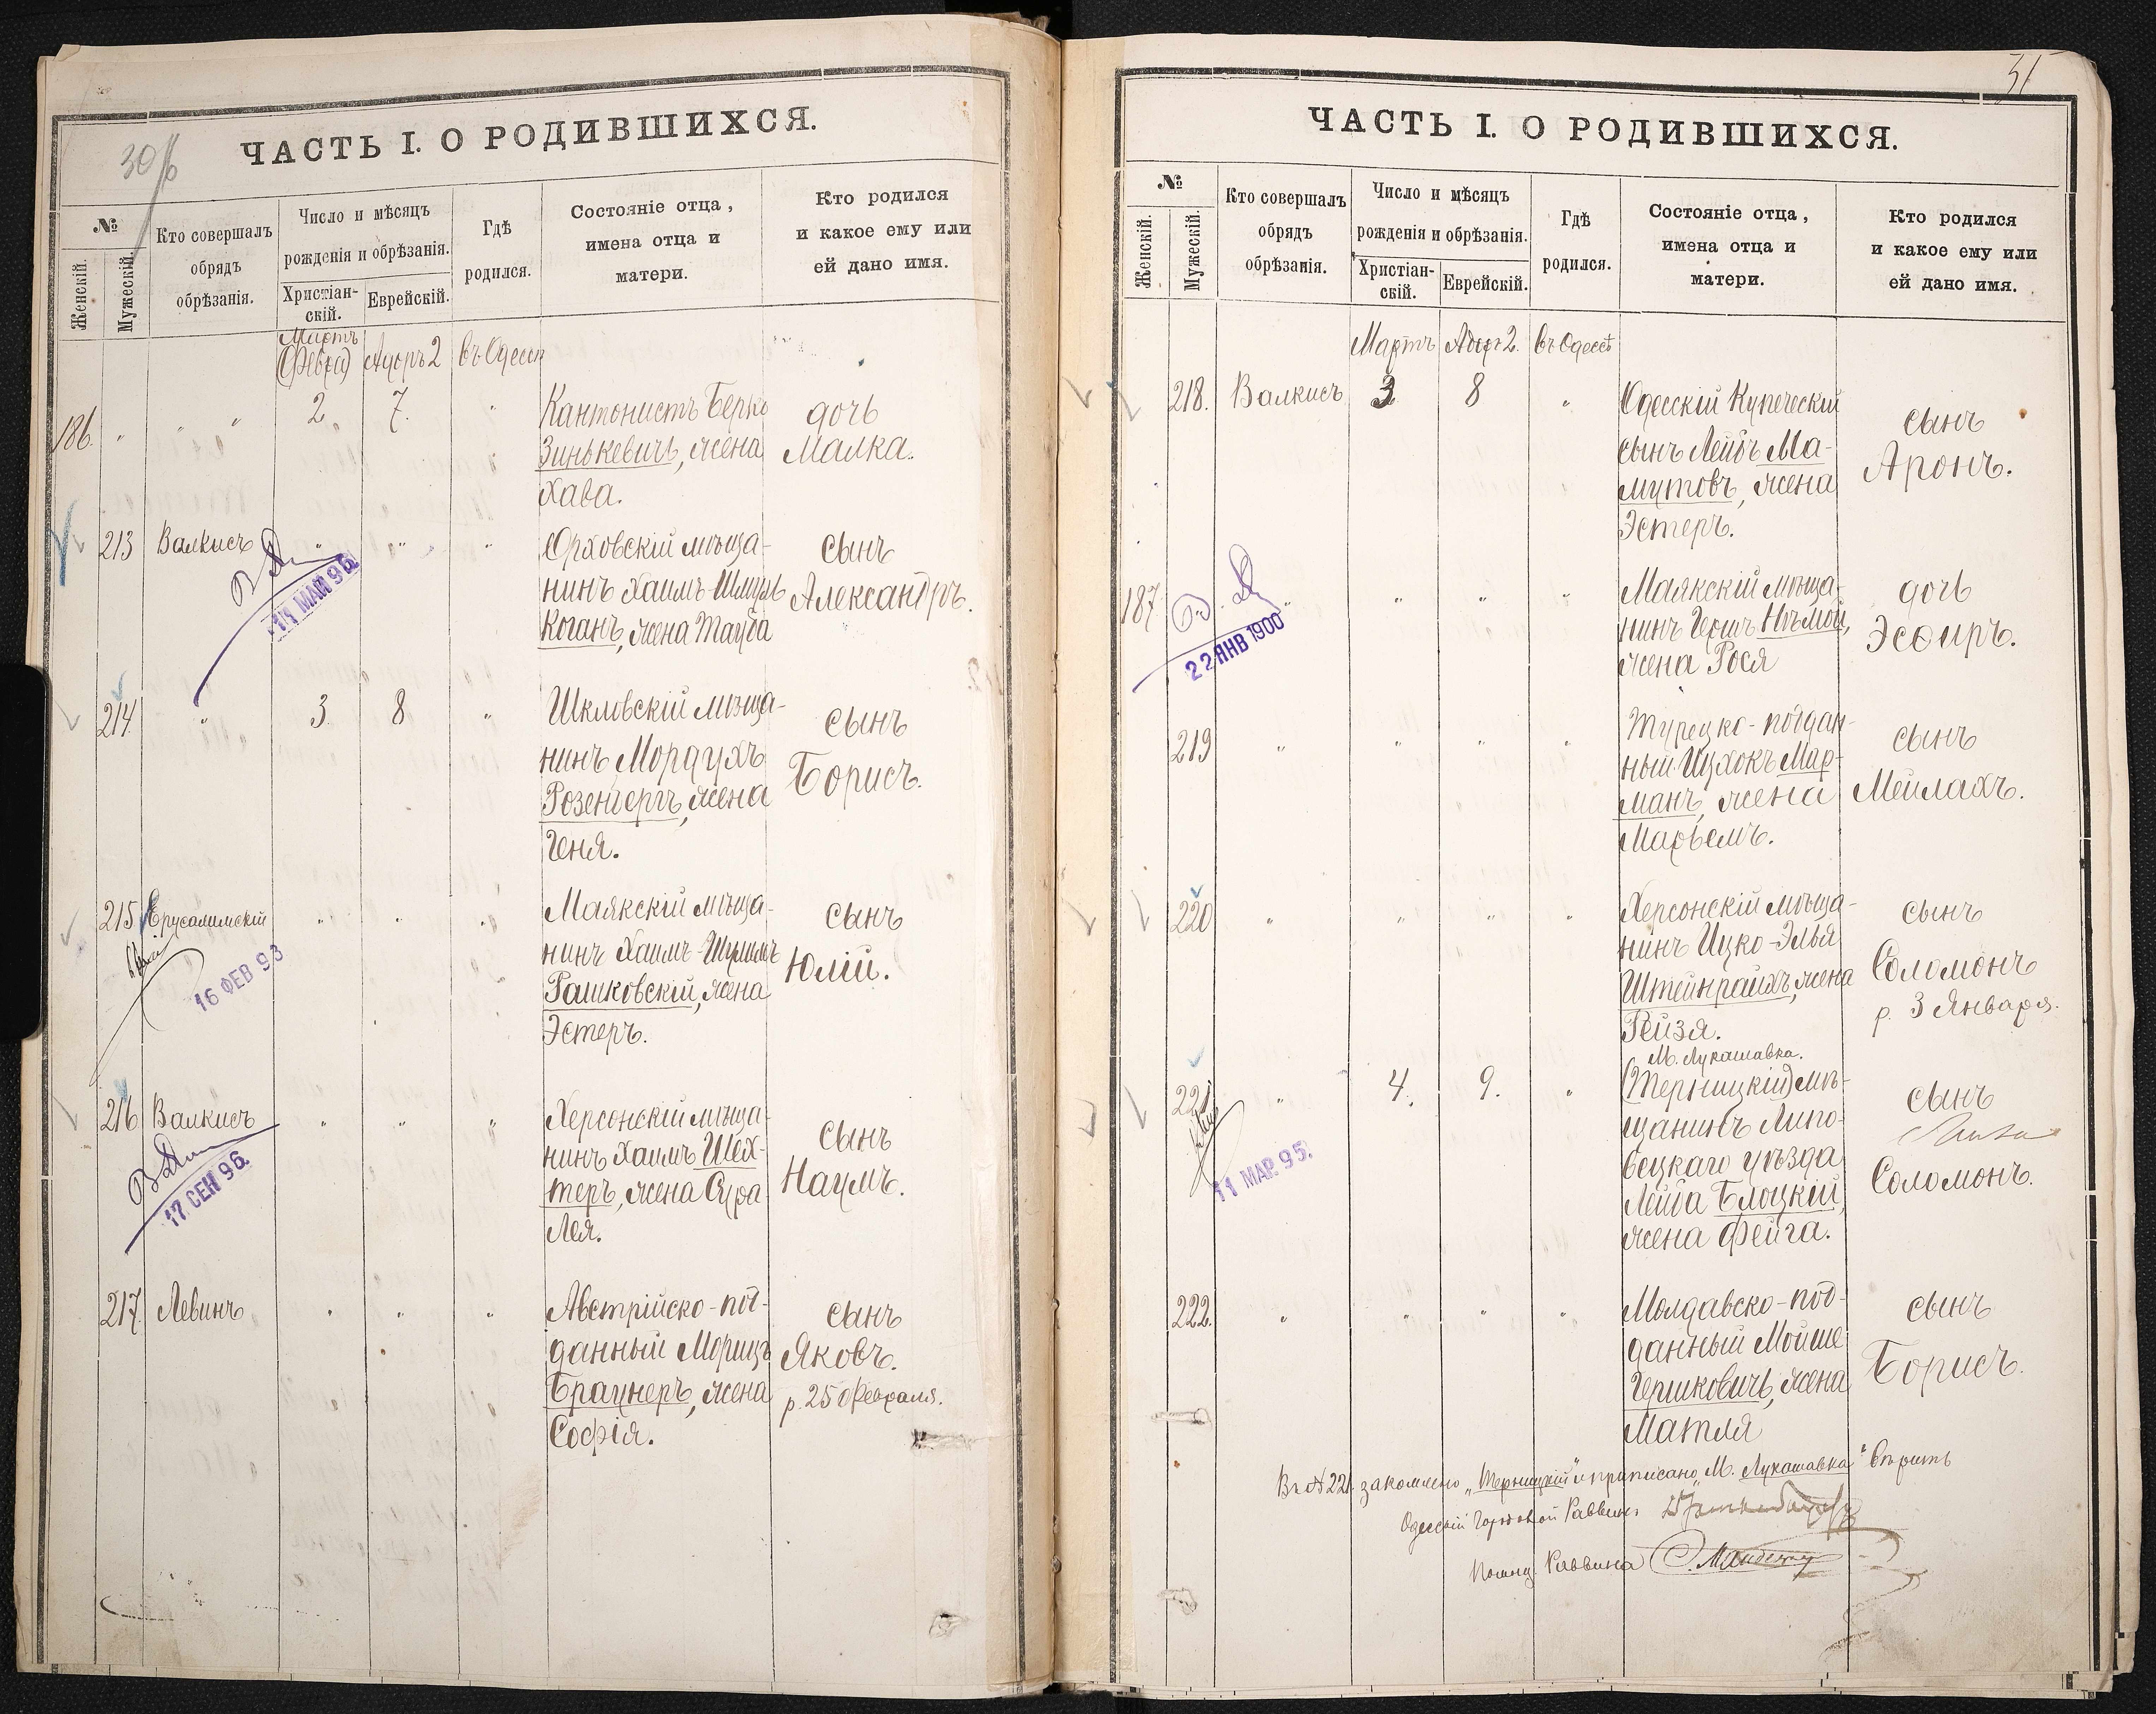 30/б
ЧАСТЬ I. О РОДИВШИХСЯ.
№
Женскій.
Мужескій.
Кто совершалъ
обрядъ
обрѣзанія.
Число и мѣсяцъ
рожденія и обрѣзанія.
Христіан-
скій.
Еврейскій.
Гдѣ
родился.
Состояніе отца,
имена отца и
матери.
Кто родился
и какое ему или
ей дано имя.
Мартъ
Адоръ 2 въ Одессѣ
186. " " " 2 7. " Кантонистъ Берко дочь
Зинькевичъ, жена Малка.
Хава.
213 Валкисъ " " " Орховскій мѣща- сынъ
нинъ Хаимъ-Шмуль Александръ.
Коганъ, жена Тауба
11 МАЙ 96
214 " 3 8 " Шкловскій мѣща- сынъ
нинъ Мордухъ Борисъ.
Розенбергъ, жена
Геня.
215 Ерусалимскій " " " Маякскій мѣща- сынъ
нинъ Хаимъ- Юлій.
Рашковскій, жена
Эстеръ.
16 ФЕВ 93
216 Валкисъ " " " Херсонскій мѣща- сынъ
нинъ Хаимъ Шех- Наумъ.
теръ, жена Сура
Лея.
17 СЕН 96
217 Левинъ " " " Австрійско-под- сынъ
данный Морицъ Яковъ.
Браунеръ, жена р. 25 Февраля.
Софія.
31
ЧАСТЬ I. О РОДИВШИХСЯ.
№
Женскій.
Мужескій.
Кто совершалъ
обрядъ
обрѣзанія.
Число и мѣсяцъ
рожденія и обрѣзанія.
Христіан-
скій.
Еврейскій.
Гдѣ
родился.
Состояніе отца,
имена отца и
матери.
Кто родился
и какое ему или
ей дано имя.
Мартъ Адоръ 2. въ Одессѣ
218. Валкисъ 3 8 " Одесскій Купеческій сынъ
сынъ Лейбъ Ма- Аронъ.
мутовъ, жена
Эстеръ.
187 " " " " Маякскій мѣща- дочь
нинъ Герш Нѣмой, Эсѳиръ.
жена Рося
22 ЯНВ 1900
219 " " " " Турецко-поддан- сынъ
ный Ицхокъ Мар- Мейлахъ.
манъ, жена
Марьемъ.
220 " " " " Херсонскій мѣща- сынъ
нинъ Ицко-Элья Соломонъ
Штейнрайхъ, жена р. 3 Января.
Рейзя.
М. Лукашавка.
221 " 4. 9. " (Терницкій) мѣ- сынъ
щанинъ Липо-
вецкаго уѣзда Соломонъ.
Лейба Блоцкій,
жена Фейга.
11 МАР. 95.
222. " " " " Молдавско-под- сынъ
данный Мойше Борисъ.
Гершковичъ, жена
Матля
Въ № 221 закомлено „Терницкій" и приписано „М. Лукашавка" вѣрить
Одесскій Городовой Раввинъ
Помощ. Раввина